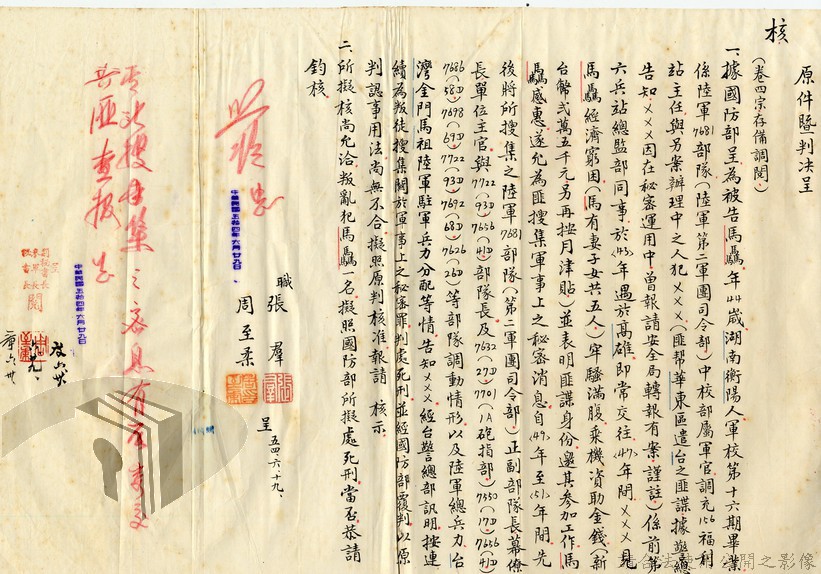 核
原件暨判決呈
(卷四宗存備調閱)
一、據國防部呈為被告馬驫年44歲湖南衡陽人軍校第十六期畢業
係陸軍7681部隊(陸軍第二軍團司令部)中校部屬軍官調充156福利
站主任與另案辦理中之人犯×××(匪幫華東區遣台之匪諜據警總
告知×××因在秘密運用中曾報請安全局轉報有案謹註)係前第
六兵站總監部同事於(45)年遇於高雄即常交往(47)年間×××見
馬驫經濟窮困(馬有妻子女共五人)牢騷滿腹乘機資助金錢(新
台幣弍萬五千元另再按月津貼)並表明匪諜身份邀其參加工作馬
驫感惠遂允為匪搜集軍事上之秘密消息自(49)年至(51)年間先
後將所搜集之陸軍7681部隊(第二軍團司令部)正副部隊長幕僚
長單位主官與7722(93D)7656(41D)部隊長及7632(27D)7701(1A砲指部)7550(17D)7656(41D)
7686(58D)7698(69D)7722(93D)7692(68D)7626(26D)等部隊調動情形以及陸軍總兵力台
灣金門馬祖陸軍駐軍兵力分配等情告知×××經台警總部訊明按連
續為叛徒搜集關於軍事上之秘密罪判處死刑並經國防部覆判以原
判認事用法尚無不合擬照原判核准報請 核示
二、所擬核尚允洽叛亂犯馬驫一名擬照國防部所擬處死刑當否恭請
鈞核
職張 羣
周至柔
呈 五四、六、十九、
中華民國五十四年六月廿九日
中華民國五十四年六月廿九日
閱